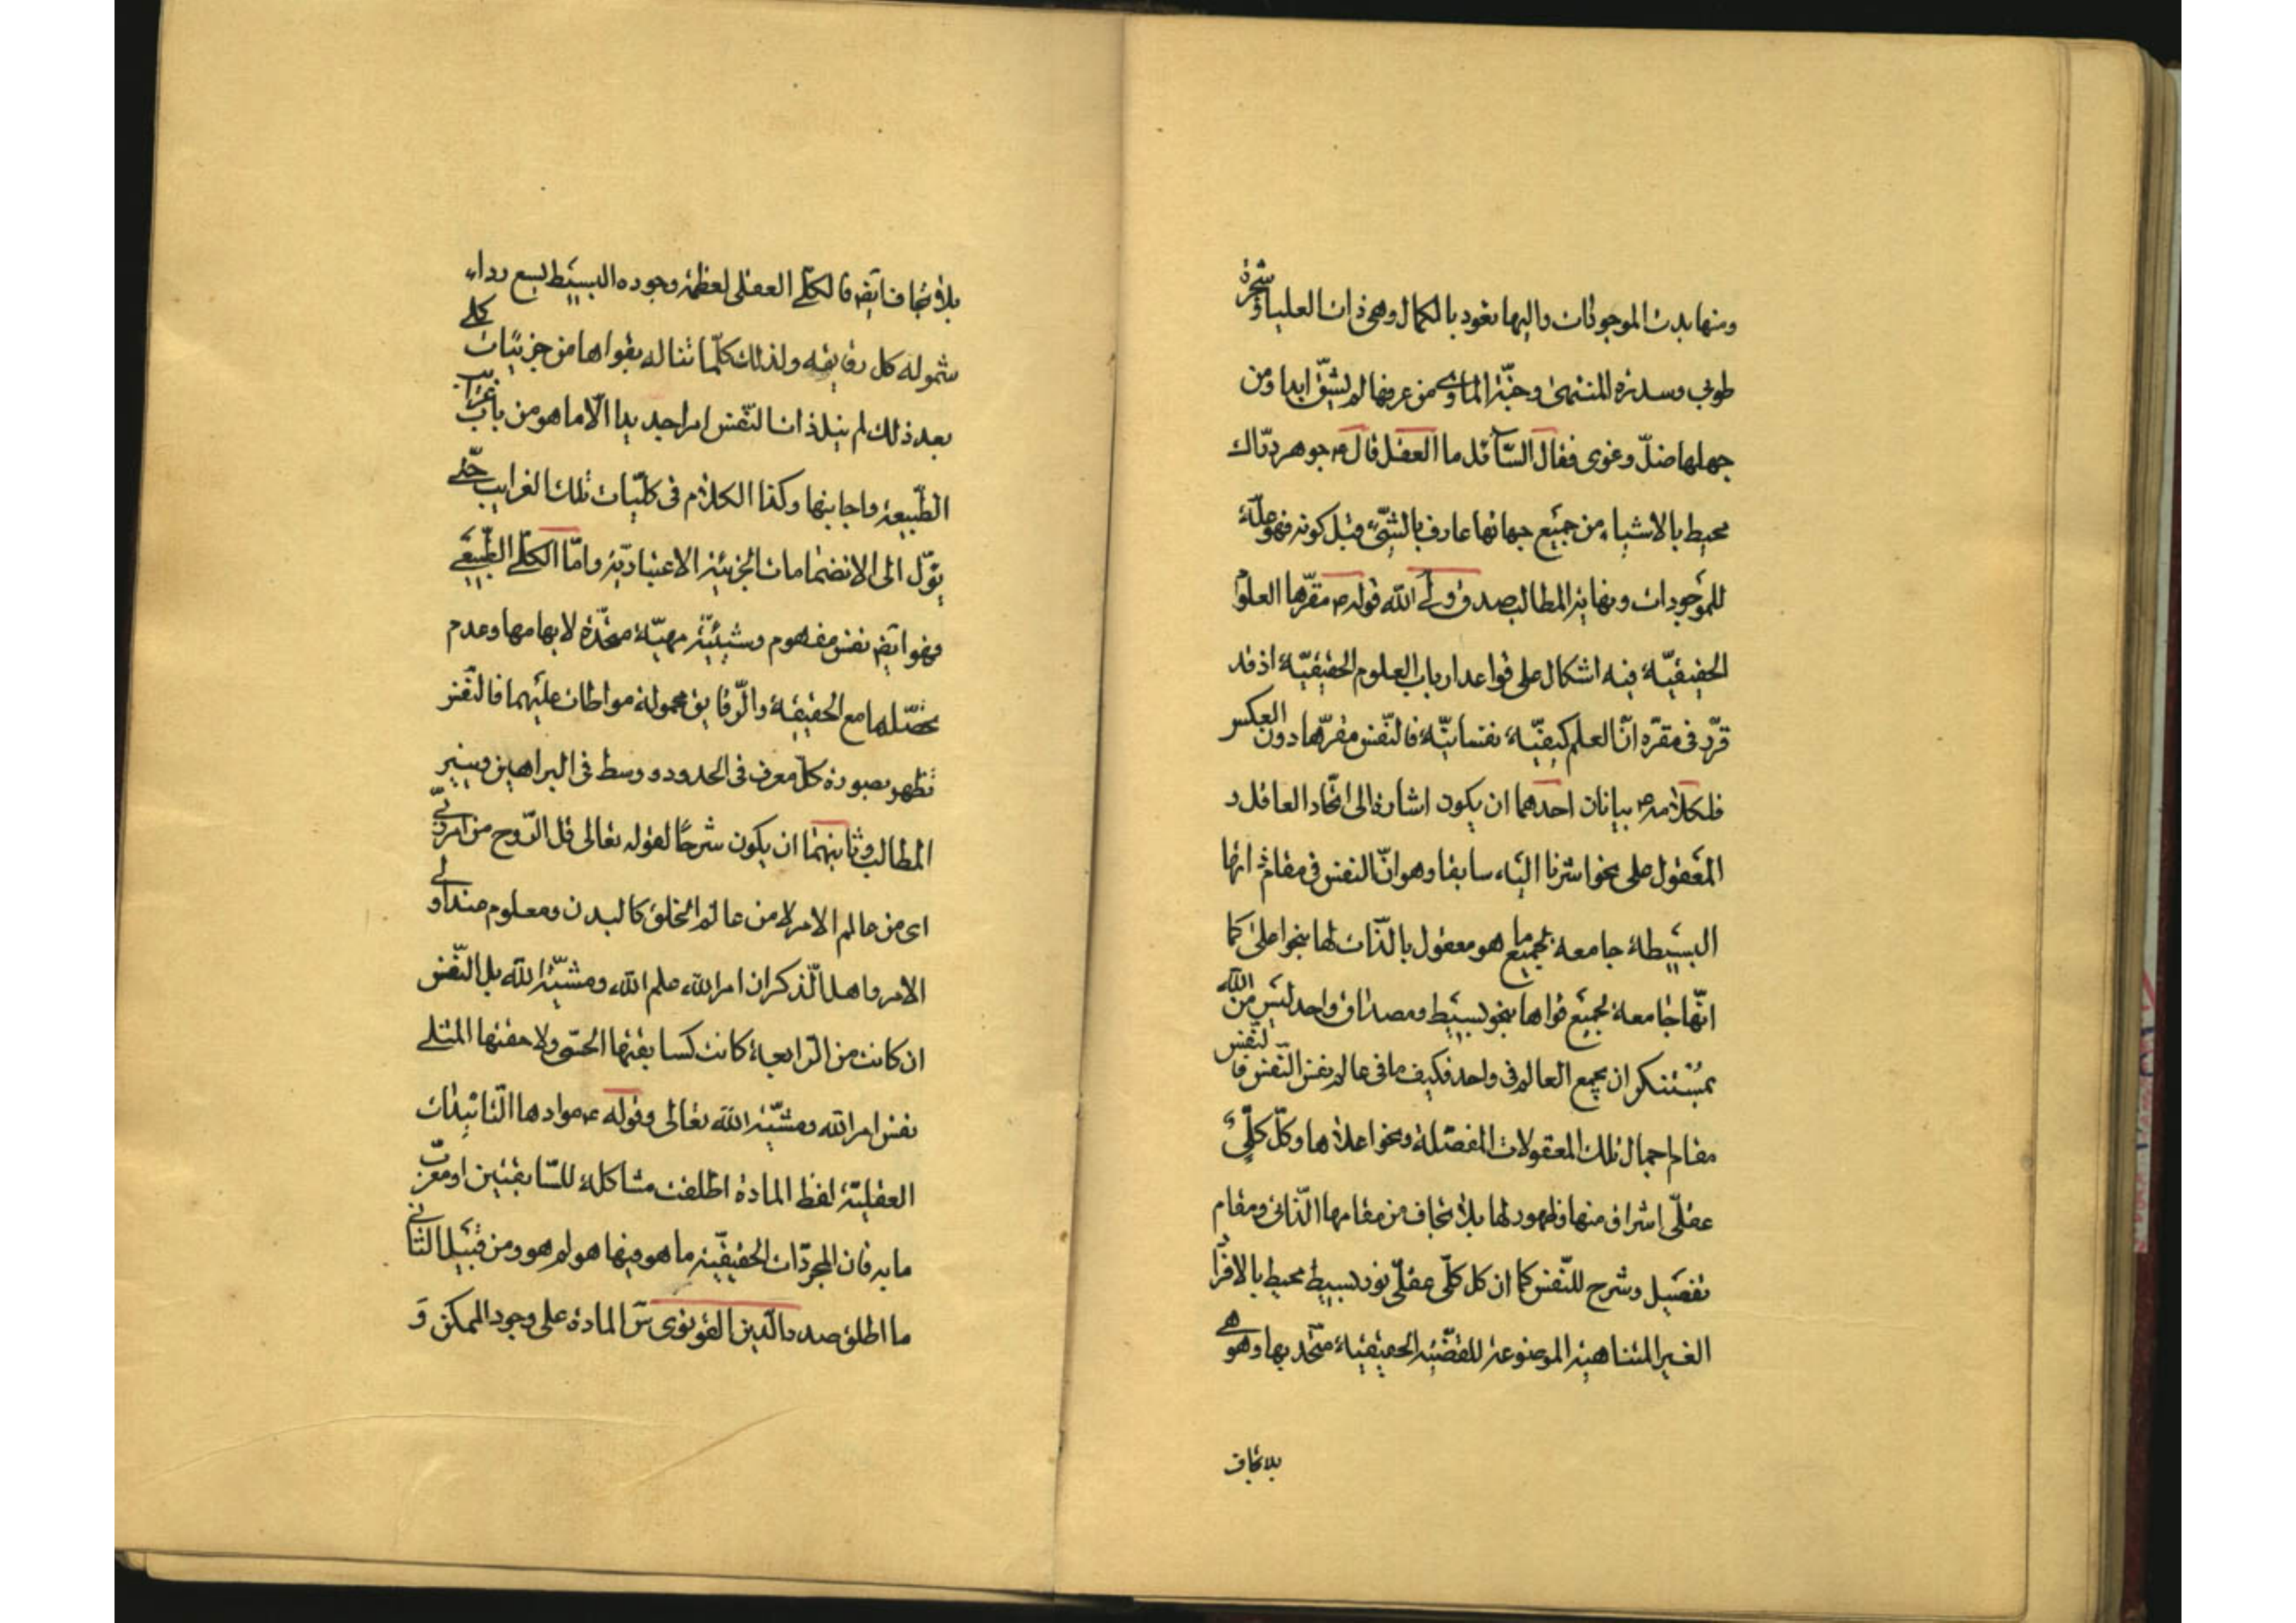 ومنها بدت الموجودات واليها تعود بالكمال وهى ذات العليا وشجرة
طوبى وسدرة المنتهى وجنّة الماوى من عرفها لم يشقّ ابدا ومن
جهلها ضلّ وغوى فقال السّائل ما العقل قال ع جوهر درّاك
محيط بالاشياء من جميع جهاتها عارف بالشّىء قبل كونه فهو علّة
للموجودات ونهاية المطالب صدق ولى الله قوله ع مقرّها العلوم
الحقيقيّة فيه اشكال على قواعد ارباب العلوم الحقيقيّة اذ قد
قرّر فى مقرّه انّ العلم كيفيّة نفسانيّة فالنّفس مقرّها دون العكس
فلكلامه ع بيانان احدهما ان يكون اشارة الى اتّحاد العاقل و
المعقول على نحو اشرنا اليه سابقا وهو انّ النفس فى مقام ذاتها
البسيطة جامعة لجميع ما هو معقول بالذّات لها بنحو اعلى كما
انّها جامعة لجميع قواها بنحو بسيط ومصداق واحد ليس من الله
بمستنكر ان يجمع العالم فى واحد فكيف ما فى عالم نفس النّفس فالنّفس
مقام اجمال تلك المعقولات المفصّلة ونحو اعلاها وكلّ كلّىّ
عقلّى اشراق منها وظهور لها بلا تجاف من مقامها الذّاتى ومقام
تفصيل وشرح للنّفس كما ان كل كلّى عقلّى نور بسيط محيط بالافراد
الغير المتناهية الموضوعة للقضيّة الحقيقيّة متّحد بها وهو هى
بلا تجاف
بلا تجاف ايضا فالكلّى العقلى لعظمة وجوده البسيط يسع رداء
شموله كل رقايقه ولذلك كلّما تناله بقواها من جزئيّات كلّى
بعد ذلك لم ينل ذات النّفس امرا جديدا الّا ما هو من باب غرايب
الطّبيعة واجانبها وكذا الكلام فى كلّيّات تلك الغرايب حتّى
يؤّل الى الانضمامات الجزئية الاعتباديّة وامّا الكلّى الطّبيعى
فهو ايضا نفس مفهوم وشيئيّة مهيّة متّحدة لابهامها وعدم
تحصّلها مع الحقيقة والرّقايق محمولة مواطات عليهما فالنّفس
تظهر بصورة كلّ معرف فى الحدود ووسط فى البراهين وسير
المطالب وثانيهما ان يكون شرحًا لقوله تعالى قل الرّوح من امر ربّى
اى من عالم الامر لا من عالم الخلق كالبدن ومعلوم عند اولى
الامر واهل الذّكر ان امر الله علم الله ومشيّة الله بل النّفس
ان كانت من الرّابعة كانت كسابقتها الحسّى ولاحقتها المثلى
نفس امر الله ومشيّة الله تعالى وقوله ع موادها التّائيدات
العقليّة لفظ المادة اطلقت مشاكلة للسّابقتين او معرّب
مايه فان المجرّدات الحقيقيّة ما هو فيها هو لم هو ومن قبيل الثّانى
ما اطلق صدر الدّين القونوى س المادة على وجود الممكن و